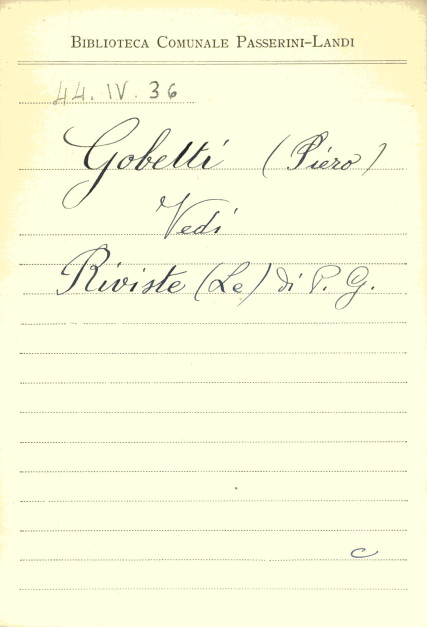 BIBLIOTECA COMUNALE PASSERINI-LANDI
44. IV. 36
Gobetti (Piero)
Vedi
Riviste (Le) di P. G.
c